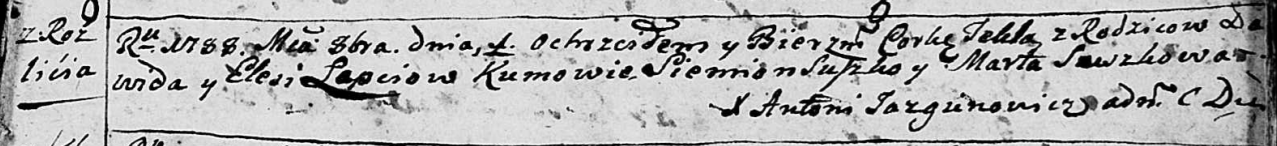 z Roz
licia
Ru 1788. Mca 8bra. dnia, 4. ochrzciłem y Bierzm: Corkę Teklą z Rodzicow Da
wida y Elesi Łapciow Kumowie Siemion Suszko y Marta Suszkowa
X Antoni Jazgunowicz adm: C D